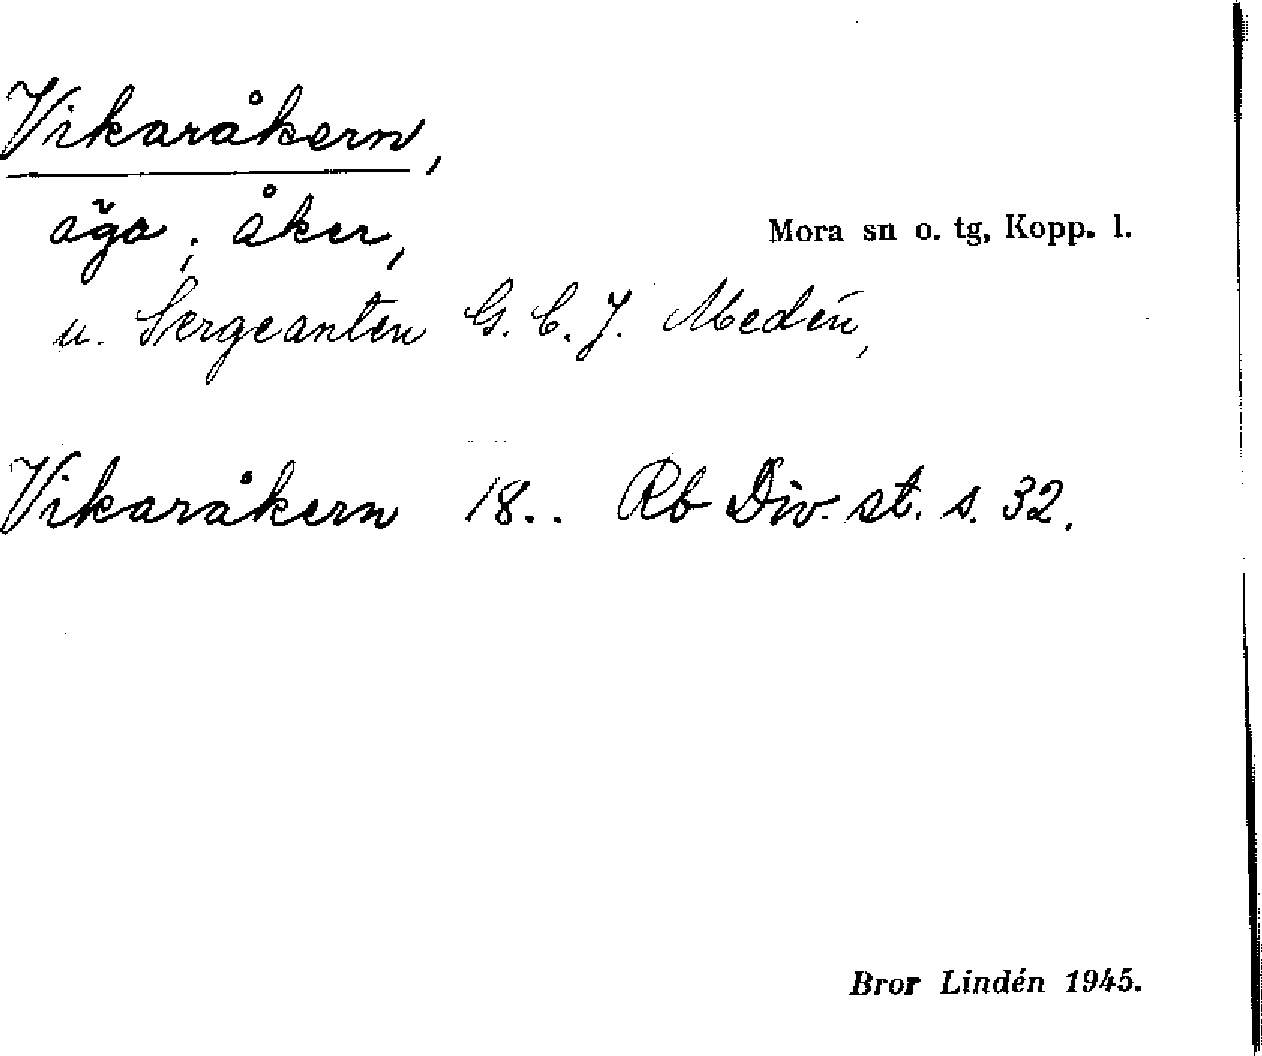 Vikaråkern,
äga; åker,
Mora sn o. tg, Kopp. l.
u. Sergeanten G. C. J. Medén,
Vikaråkern 18.. Rb Div. st. s. 32.
Bror Lindén 1945.